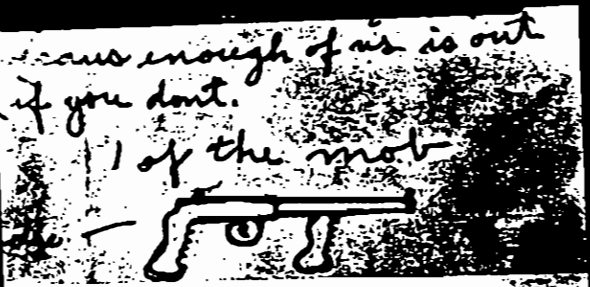 enough of us is out
if you dont.
1 of the mob